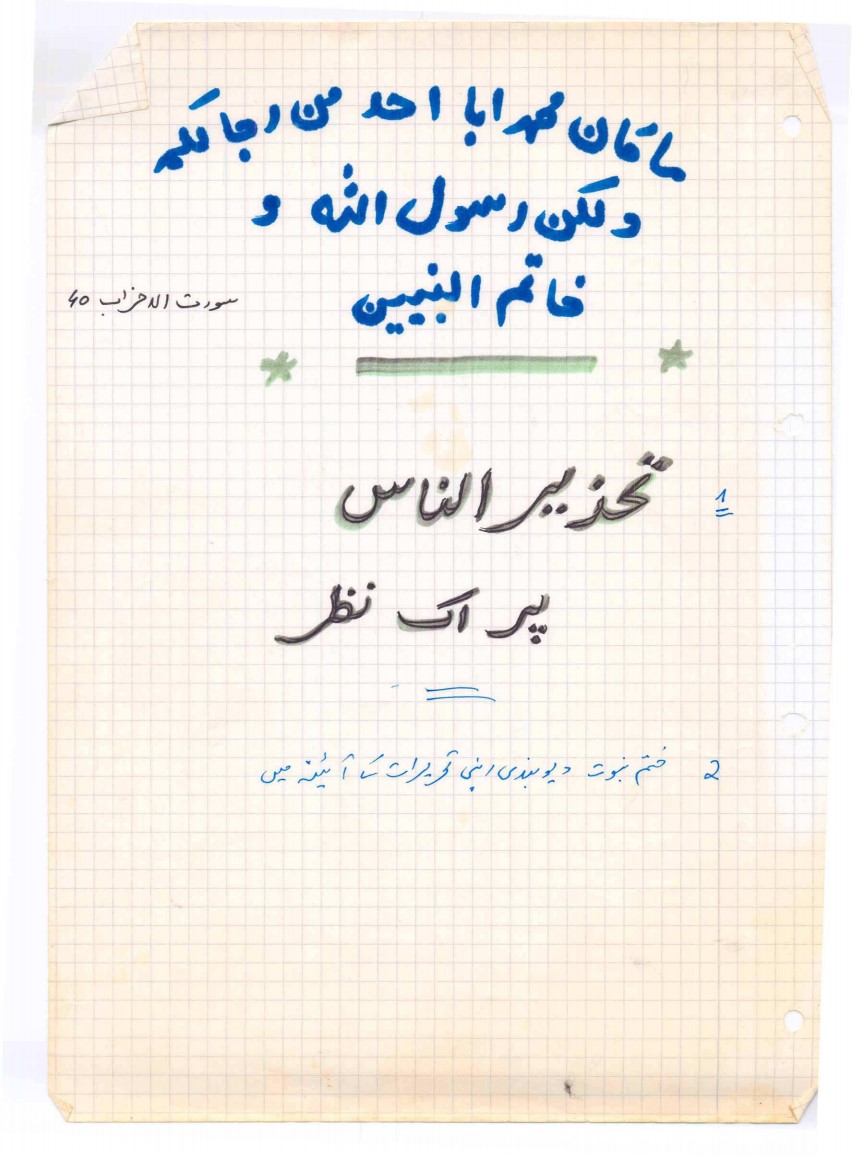 ما کان محمد ابا احد من رجالکم
ولکن رسول الله و
خاتم النبیین
سورت الاحزاب 40
1 تحذیر الناس
پر اک نظر
2 ختم نبوت دیوبندی اپنی تحریرات کے آئینہ میں